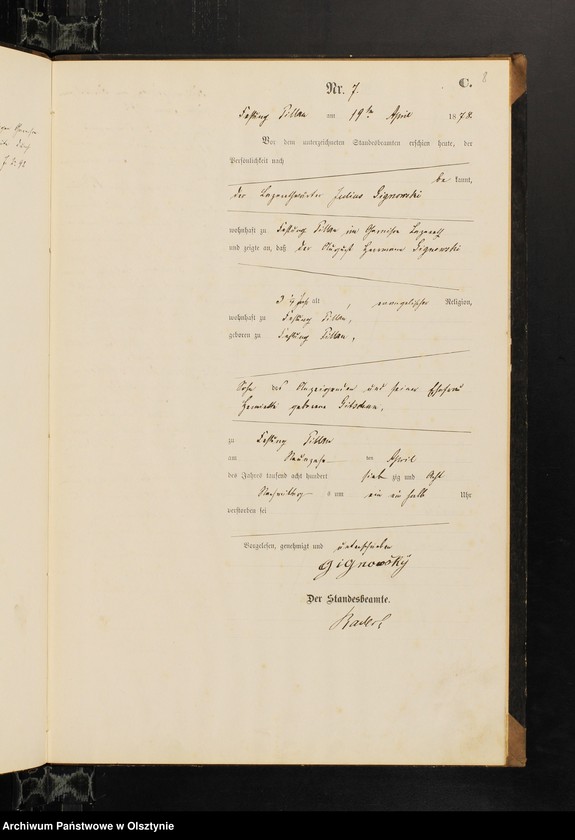 C.
8
Nr. 7.
Festung Pillau am 19ten April 1878.
Vor dem unterzeichneten Standesbeamten erschien heute, der
Persönlichkeit nach
be kannt,
der Lazarethwärter Julius Gignowski
wohnhaft zu Festung Pillau im Garnison Lazareth
und zeigte an, daß der August Herrmann Gignowski
3 ¼ Jahr alt, evangelischer Religion,
wohnhaft zu Festung Pillau,
geboren zu Festung Pillau,
Sohn des Anzeigenden und seiner Ehefrau
Henriette geborene
zu Festung Pillau
am Neunzehn ten April
des Jahres tausend acht hundert sieb zig und Acht
Nachmittags um ein ein halb Uhr
verstorben sei
Vorgelesen, genehmigt und unterschrieben
Gignowsky
Der Standesbeamte.
Archiwum Państwowe w Olsztynie